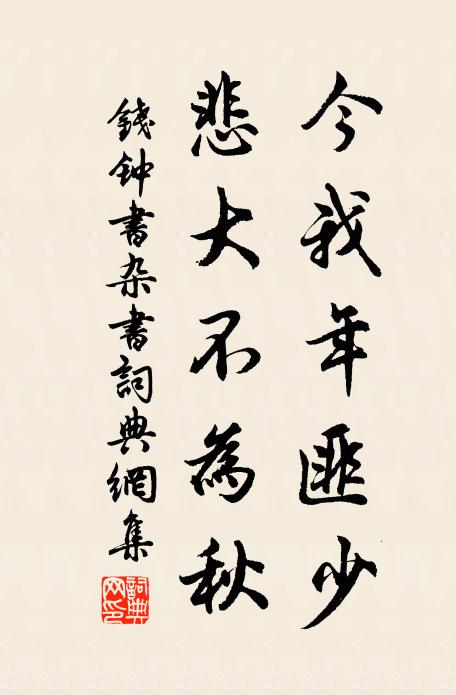 今我年匪少
悲大不為秋
錢钟書杂書詞典網集
詞典網印